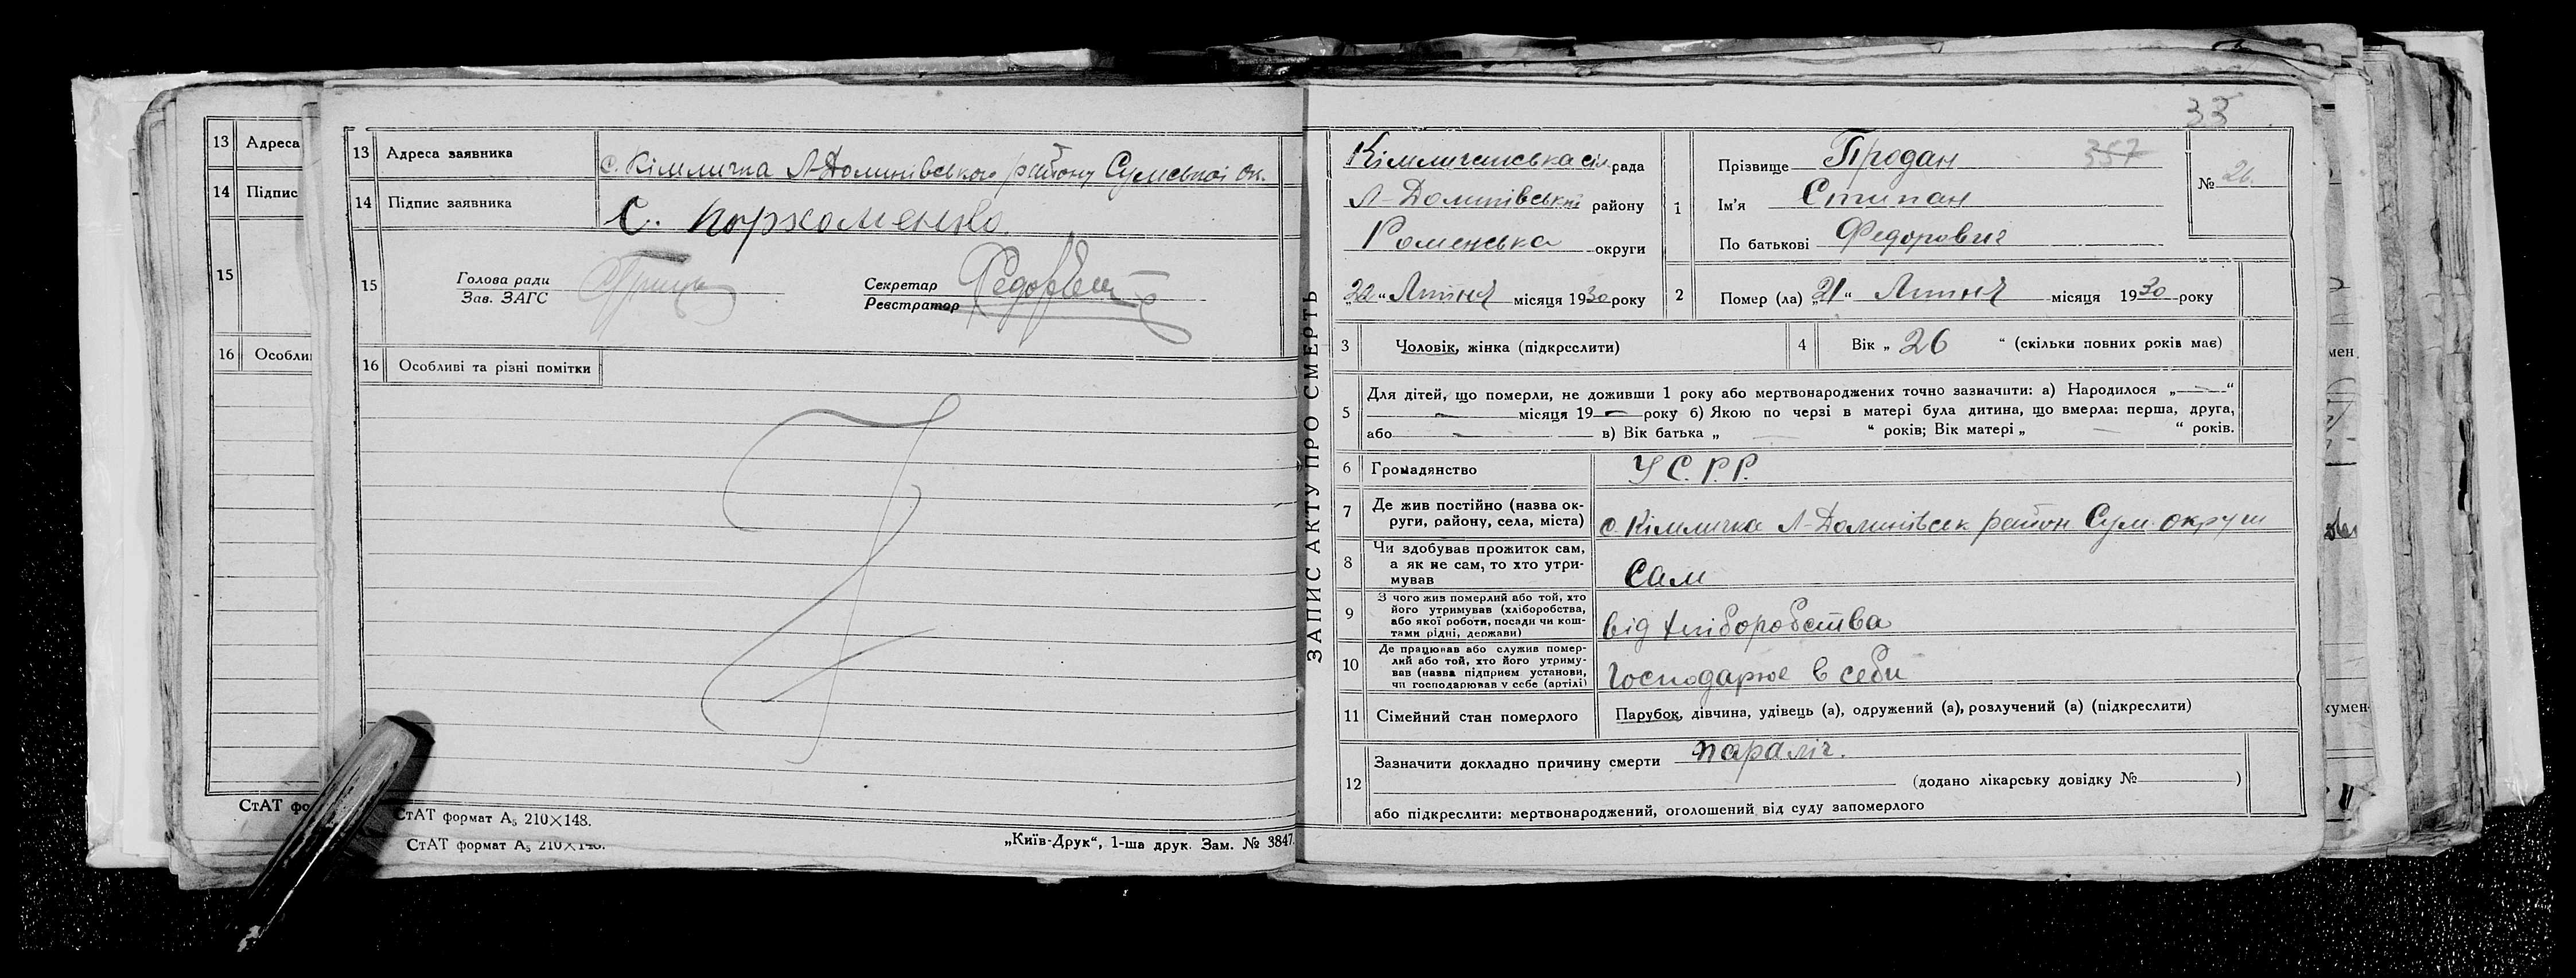 13 Адреса
14 Підпис
15
16 Особли
СтАТ фо
13 Адреса заявника с. Кімличка Л-Долинівського району Сумської ок.
14 Підпис заявника С. Пархоменко.
15 Голова ради
Зав. ЗАГС
Секретар
Реєстратор
16 Особливі та різні помітки
СтАТ формат А₅ 210×148.
СтАТ формат А₅ 210×148.
„Київ-Друк“, 1-ша друк. Зам. № 3847.
ЗАПИС АКТУ ПРО СМЕРТЬ
33
Кімличанська сіл. рада
Л-Долинівський району
Роменська округи
„22“ Липня місяця 1930 року
1 Прізвище Продан 357
Ім'я Степан
По батькові Федорович
№ 26
2 Помер (ла) „21“ Липня місяця 1930 року
3 Чоловік, жінка (підкреслити)
4 Вік „ 26 “ (скільки повних років має)
5 Для дітей, що померли, не доживши 1 року або мертвонароджених точно зазначити: а) Народилося „—“
— місяця 19— року б) Якою по черзі в матері була дитина, що вмерла: перша, друга,
або — в) Вік батька „ — “ років; Вік матері „ — “ років.
6 Громадянство У.С.Р.Р.
7 Де жив постійно (назва ок-
руги, району, села, міста) с. Кімличка Л-Долинівськ район Сум. округи
8 Чи здобував прожиток сам,
а як не сам, то хто утри-
мував Сам
9 З чого жив померлий або той, хто
його утримував (хліборобства,
або якої роботи, посади чи кош-
тами рідні, держави) від хліборобства
10 Де працював або служив помер-
лий або той, хто його утриму-
вав (назва підприєм установи,
чи господарював у себе (артілі) Господарює в себи
11 Сімейний стан померлого Парубок, дівчина, удівець (а), одружений (а), розлучений (а) (підкреслити)
12 Зазначити докладно причину смерти параліч.
(додано лікарську довідку № )
або підкреслити: мертвонароджений, оголошений від суду запомерлого
мен.
кумен-